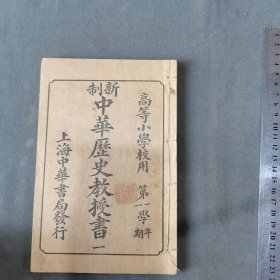 高等小學校用 第一學年 期
新制
中華歷史教授書 一
上海中華書局發行